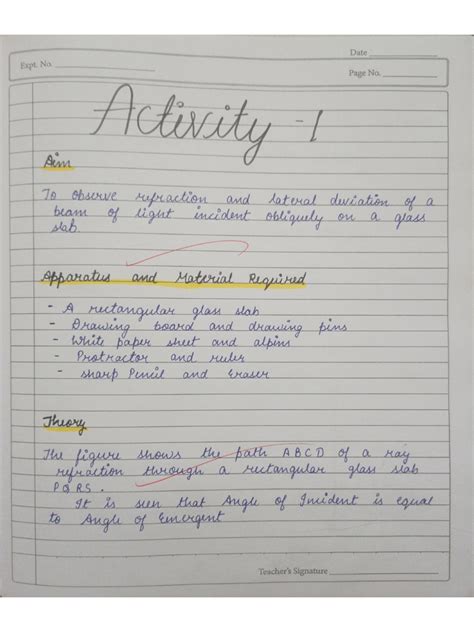 Date
Expt. No.
Page No.
Activity - 1
Aim
To observe refraction and lateral deviation of a
beam of light incident obliquely on a glass
slab.
Apparatus and Material Required
- A rectangular glass slab
- Drawing board and drawing pins
- White paper sheet and alpins
- Protractor and ruler
- sharp Pencil and Eraser
Theory
The figure shows the path ABCD of a ray
refraction through a rectangular glass slab
PQRS.
It is seen that Angle of Incident is equal
to Angle of Emergent
Teacher's Signature